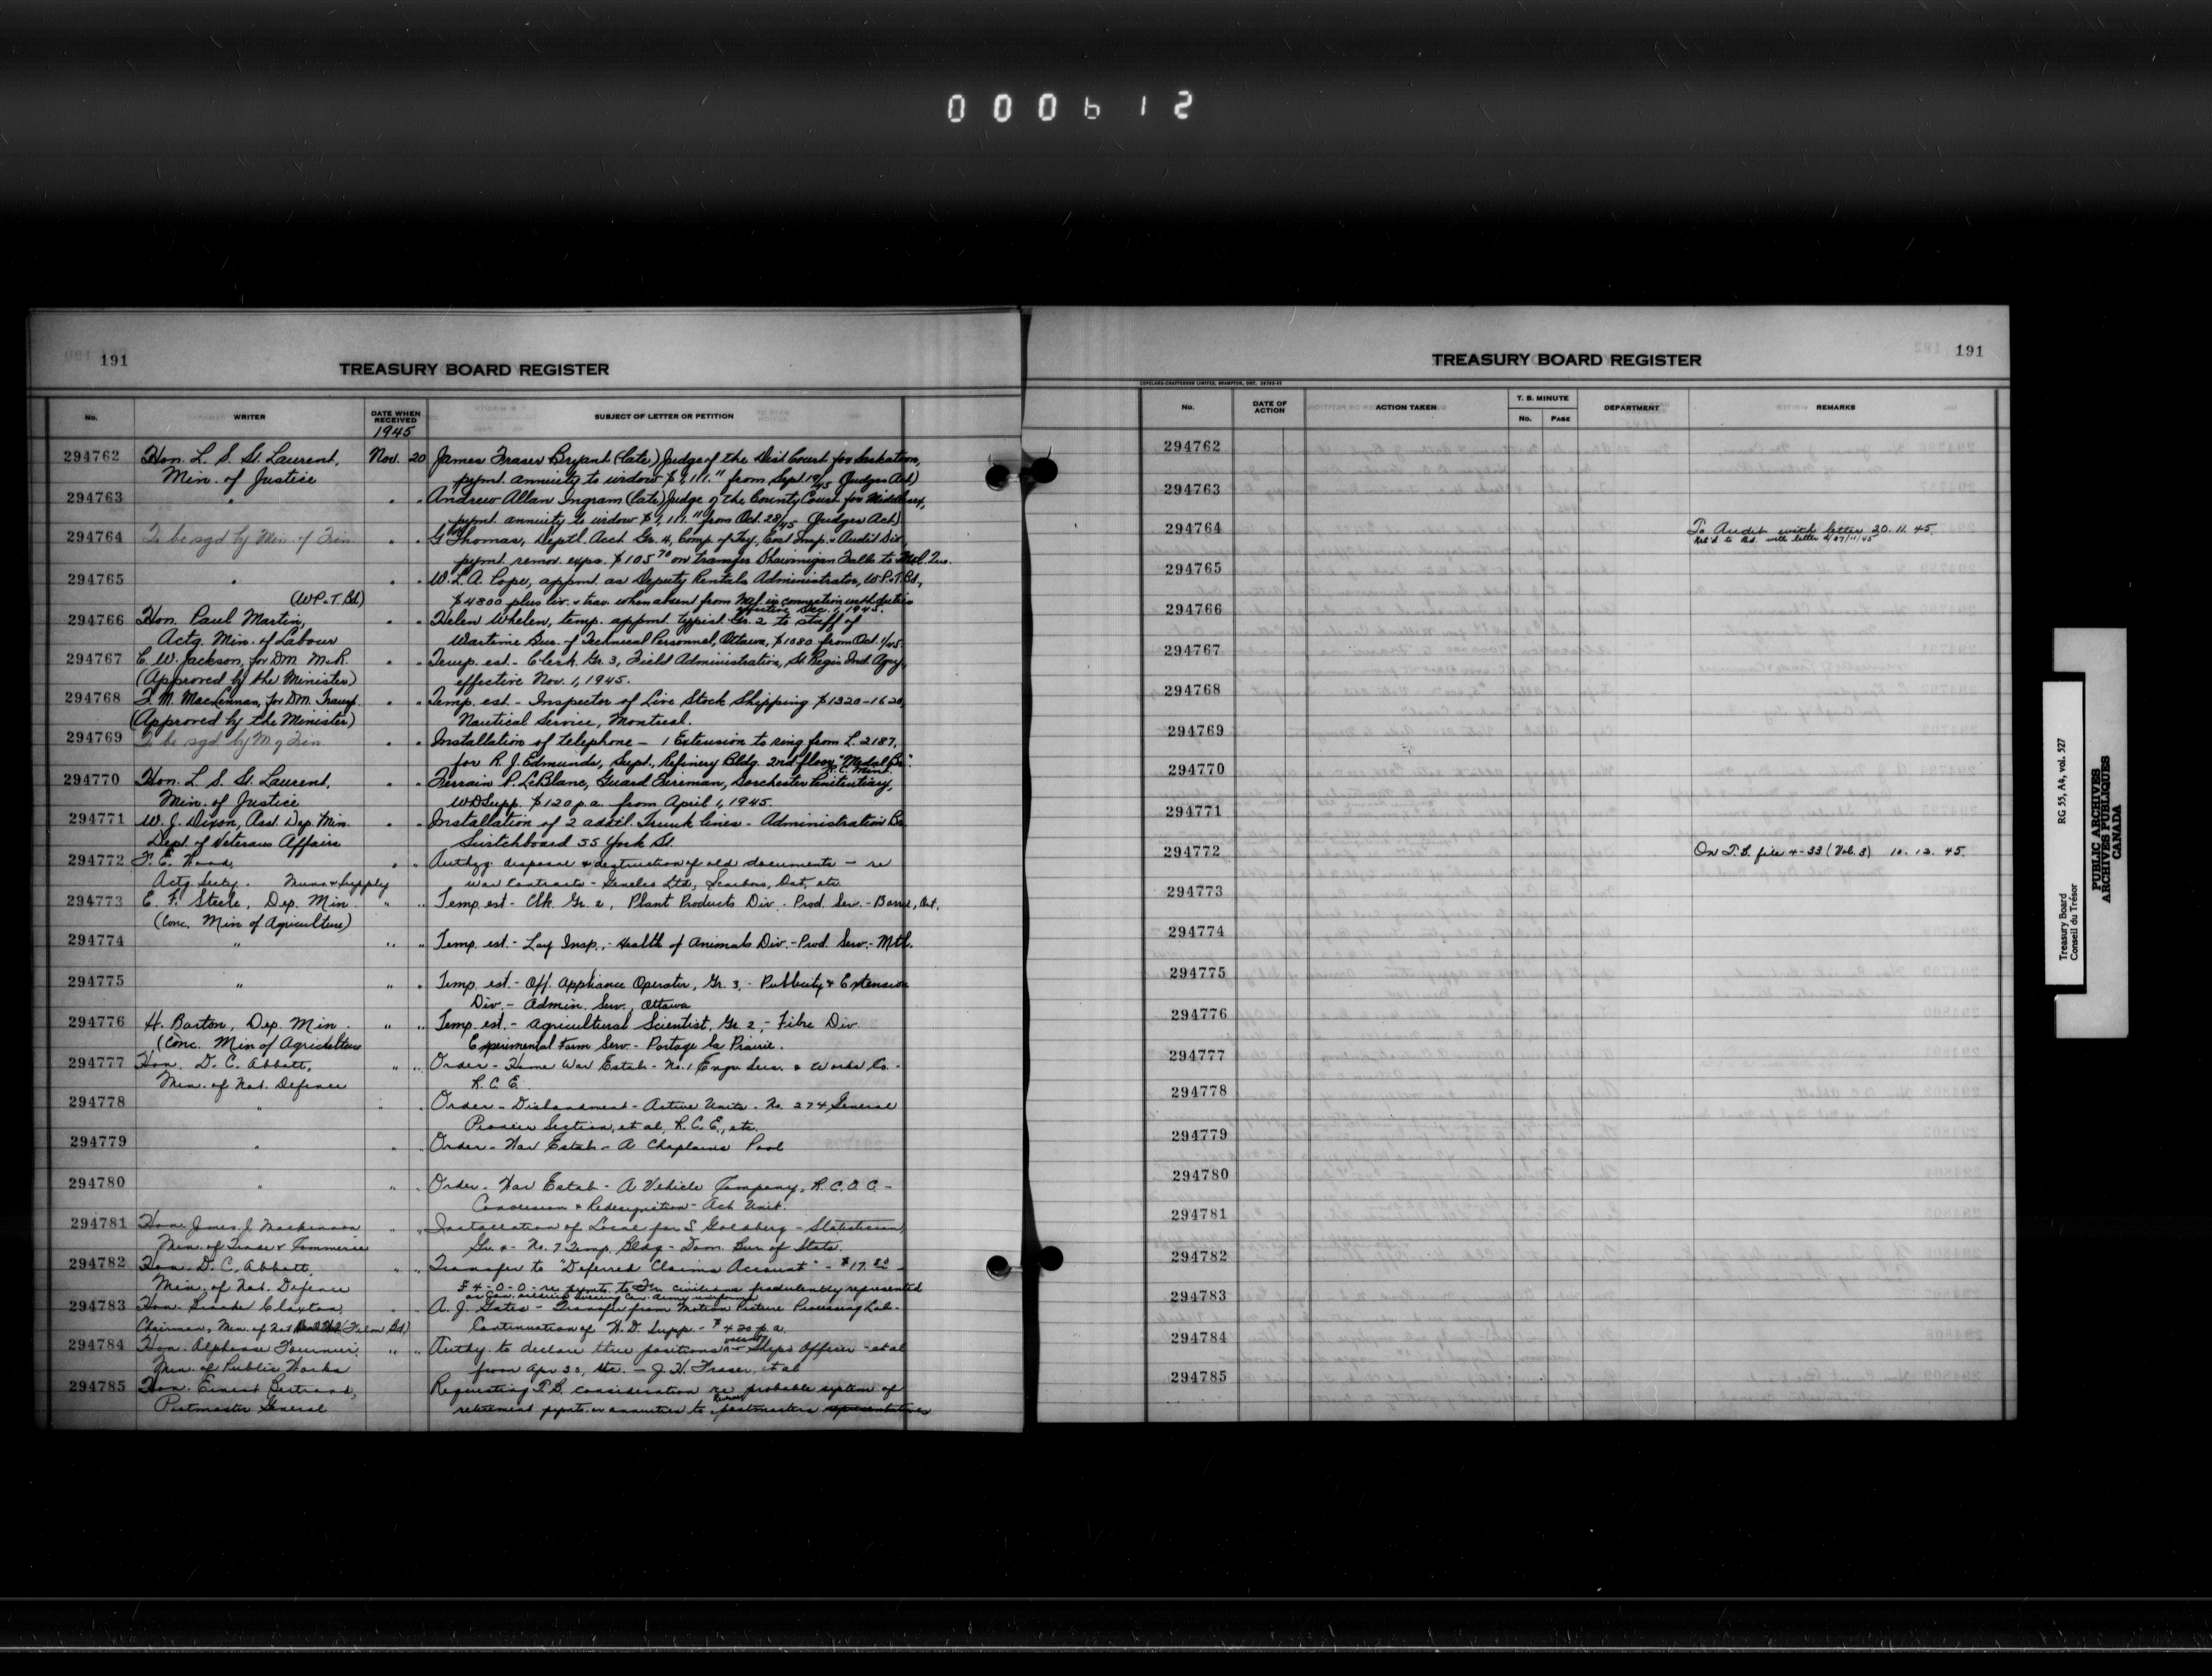 000612
191
TREASURY BOARD REGISTER
No.
WRITER
DATE WHEN RECEIVED
SUBJECT OF LETTER OR PETITION
1945
294762 Hon. L. S. St. Laurent, Nov. 20 James Fraser Bryant (late) Judge of the Dist Court for Saskatoon,
Min. of Justice pymt. annuity to widow $ from Sept 19/45 (Judges Act)
294763 " " " Andrew Allan Ingram (late) Judge of the County Court for Middlesex,
pymt. annuity to widow $ from Oct. 28/45 (Judges Act)
294764 To be sgd by Min. of Fin. " " G Thomas, Deptl. Acct. Gr. 4, Comp. of Try, Cost Insp. & Audit Div.,
pymt. remov. exps. $105.70 on transfer Shawinigan Falls to
294765 " " " W. L. A. Cope, appmt. as Deputy Rentals Administrator, W.P.&T.Bd.,
(W.P.&T. Bd) $4800 plus liv. & trav. when absent from in connection with duties
effective Dec. 1, 1945.
294766 Hon. Paul Martin, " " Helen Whelen, temp. appmt. typist Gr. 2 to staff of
Actg. Min. of Labour Wartime Bur. of Technical Personnel, Ottawa, $1080 from Oct. 1/45
294767 C. W. Jackson, for DM. M.&R. " " Temp. est. - Clerk Gr. 3, Field Administration, St. Regis Ind. Agcy,
(Approved by the Minister) effective Nov. 1, 1945.
294768 F. M. MacLennan, for DM. Transp. " " Temp. est. - Inspector of Live Stock Shipping $1320-1620,
(Approved by the Minister) Nautical Service, Montreal.
294769 To be sgd by M of Fin " " Installation of telephone - 1 Extension to ring from L. 2187,
for R. J. Edmunds, Supt., Refinery Bldg. 2nd floor "Medal Br".
R.C. Mint.
294770 Hon. L. S. St. Laurent, " " Ferrain P. LeBlanc, Guard Fireman, Dorchester Penitentiary,
Min. of Justice WDSupp. $120 p.a. from April 1, 1945.
294771 W. J. Dixon, Asst. Dep. Min. " " Installation of 2 addtl. Trunk lines - Administration Br.
Dept. of Veterans Affairs Switchboard 55 York St.
294772 F. E. Wood, " " Authzg. disposal & destruction of old documents - re
Actg. Secty. Muns & Supply war contracts - Genelco Ltd, Scarboro, Ont, etc.
294773 E. F. Steele, Dep. Min. " " Temp. est - Clk. Gr. 2, Plant Products Div. - Prod. Serv. - Barrie, Ont.
(Conc. Min of Agriculture)
294774 " " " Temp. est. - Lay Insp., - Health of Animals Div. - Prod. Serv. - Mtl.
294775 " " " Temp. est. - Off. Appliance Operator, Gr. 3, - Publicity & Extension
Div. - Admin. Serv., Ottawa
294776 H. Barton, Dep. Min. " " Temp. est. - Agricultural Scientist, Gr. 2, - Fibre Div.
(Conc. Min of Agriculture Experimental Farm Serv. - Portage la Prairie.
294777 Hon. D. C. Abbott, " " Order - Home War Estab - No. 1 Engr. Serv. & Works Co. -
Min. of Nat. Defence R.C.E.
294778 " " " Order - Disbandment - Active Units. No. 274 General
Pioneer Section, et al, R.C.E., etc.
294779 " " " Order - War Estab - A Chaplains Pool
294780 " " " Order - War Estab - A Vehicle Company, R.C.O.C. -
Conversion & Redesignation - Act. Unit.
294781 Hon. James J. MacKinnon " " Installation of Local for S. Goldberg - Statistician,
Min. of Trade & Commerce Gr. 2 - No. 7 Temp. Bldg - Dom. Bur. of Stats.
294782 Hon. D. C. Abbott, " " Transfer to "Deferred Claims Account" - $17.80 -
Min. of Nat. Defence £4-0-0 - re pymts. to civilians fradulently represented
as Can. soldiers wearing Can. Army uniforms
294783 Hon. Brooke Claxton, " " A. J. Gates - Transfer from Motion Picture Processing Lab. -
Chairman, Min. of Nat (Film Bd) Continuation of W.D. Supp. - $420 p.a.
294784 Hon. Alphonse Fournier, " " Authy. to declare three positions vacant - Ships Officer - et al
Min. of Public Works from Apr 30, etc. - J. H. Fraser, et al
294785 Hon. Ernest Bertrand, Requesting T.B. consideration re probable system of
Postmaster General retirement pymts. or annuities to Revenue postmasters representatives
191
TREASURY BOARD REGISTER
COPELAND-CHATTERSON LIMITED, BRAMPTON, ONT.
No.
DATE OF ACTION
ACTION TAKEN
T. B. MINUTE
No. PAGE
DEPARTMENT
REMARKS
294762
294763
294764 To Audit with letter 20.11.45.
Ret'd to Bd. with letter d/27/11/45
294765
294766
294767
294768
294769
294770
294771
294772 On T.B. file 4-33 (Vol. 3) 10.12.45.
294773
294774
294775
294776
294777
294778
294779
294780
294781
294782
294783
294784
294785
Treasury Board RG 55, A4, vol. 527
Conseil du Trésor
PUBLIC ARCHIVES
ARCHIVES PUBLIQUES
CANADA